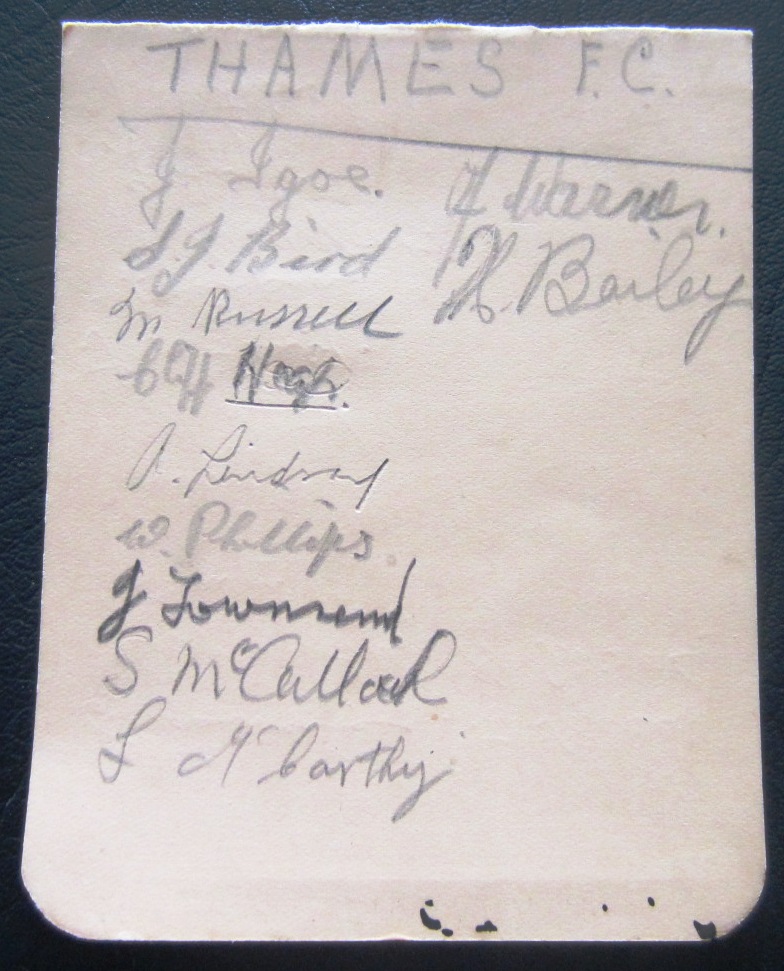 THAMES F.C.
J. Igoe. H Warner.
S.J. Bird H. Bailey
M Russell
A. Lindsay
W. Phillips.
J Townsend
S McCulloch
L McCarthy